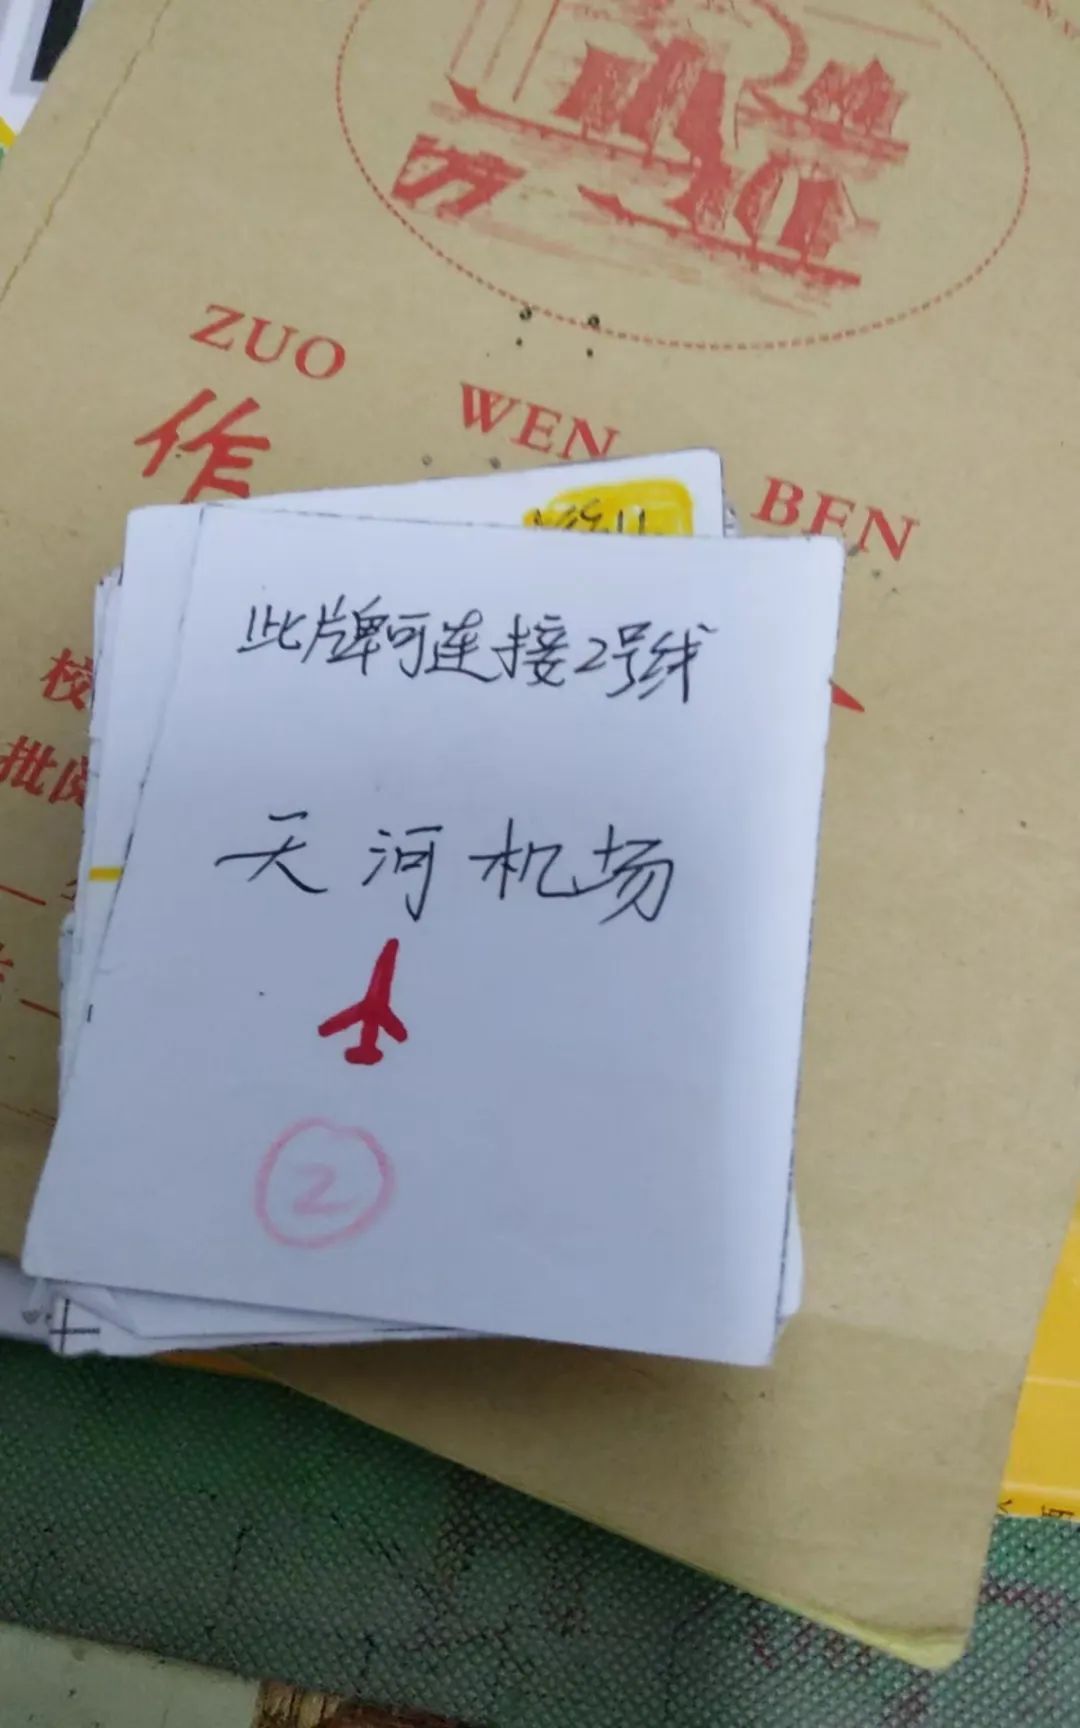 ZUO WEN BEN
作
校
批阅
此牌可连接2号线
天河机场
2